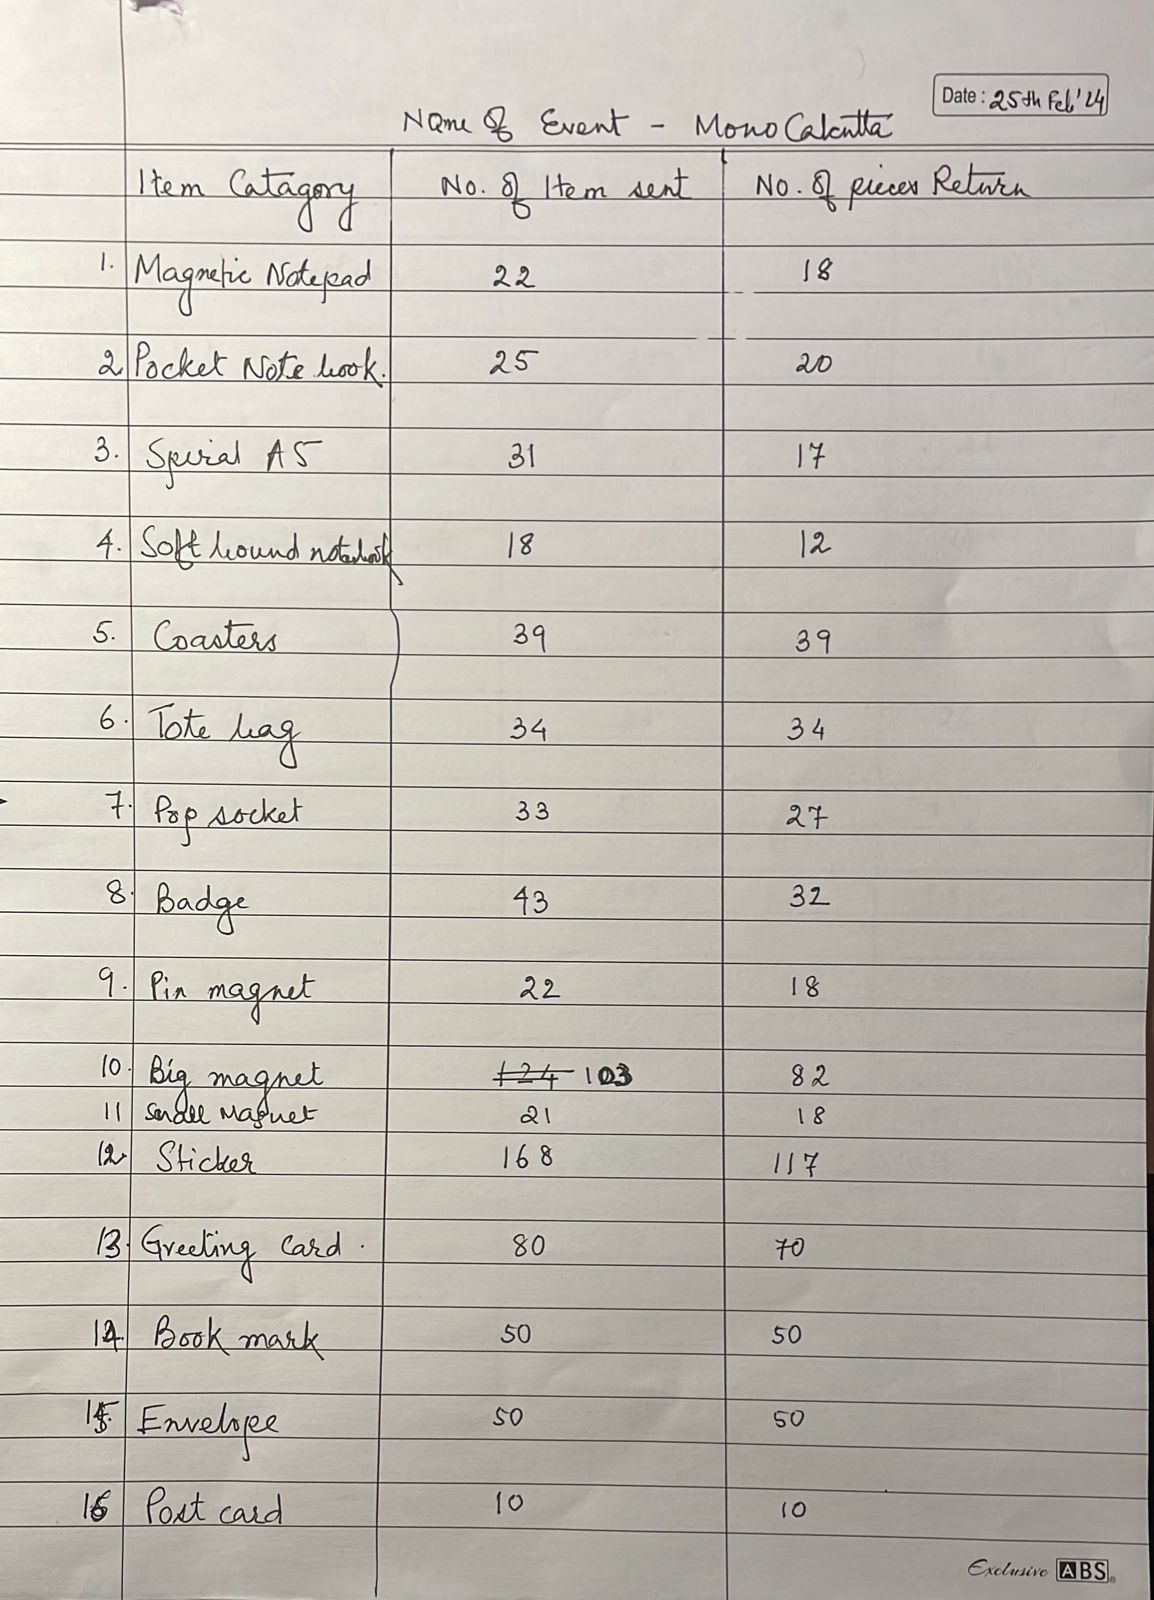 Date : 25th Feb'24
Name Of Event - Mono Calcutta
Item Catagory No. Of Item sent No. Of pieces Return
1. Magnetic Notepad 22 18
2 Pocket Note book. 25 20
3. Spiral A5 31 17
4. Soft bound notebook 18 12
5. Coasters 39 39
6. Tote bag 34 34
7. Pop socket 33 27
8. Badge 43 32
9. Pin magnet 22 18
10. Big magnet 124 103 82
11 Small Magnet 21 18
12. Sticker 168 117
13. Greeting Card. 80 70
14. Book mark 50 50
15. Envelope 50 50
16 Post card 10 10
Exclusive ABS